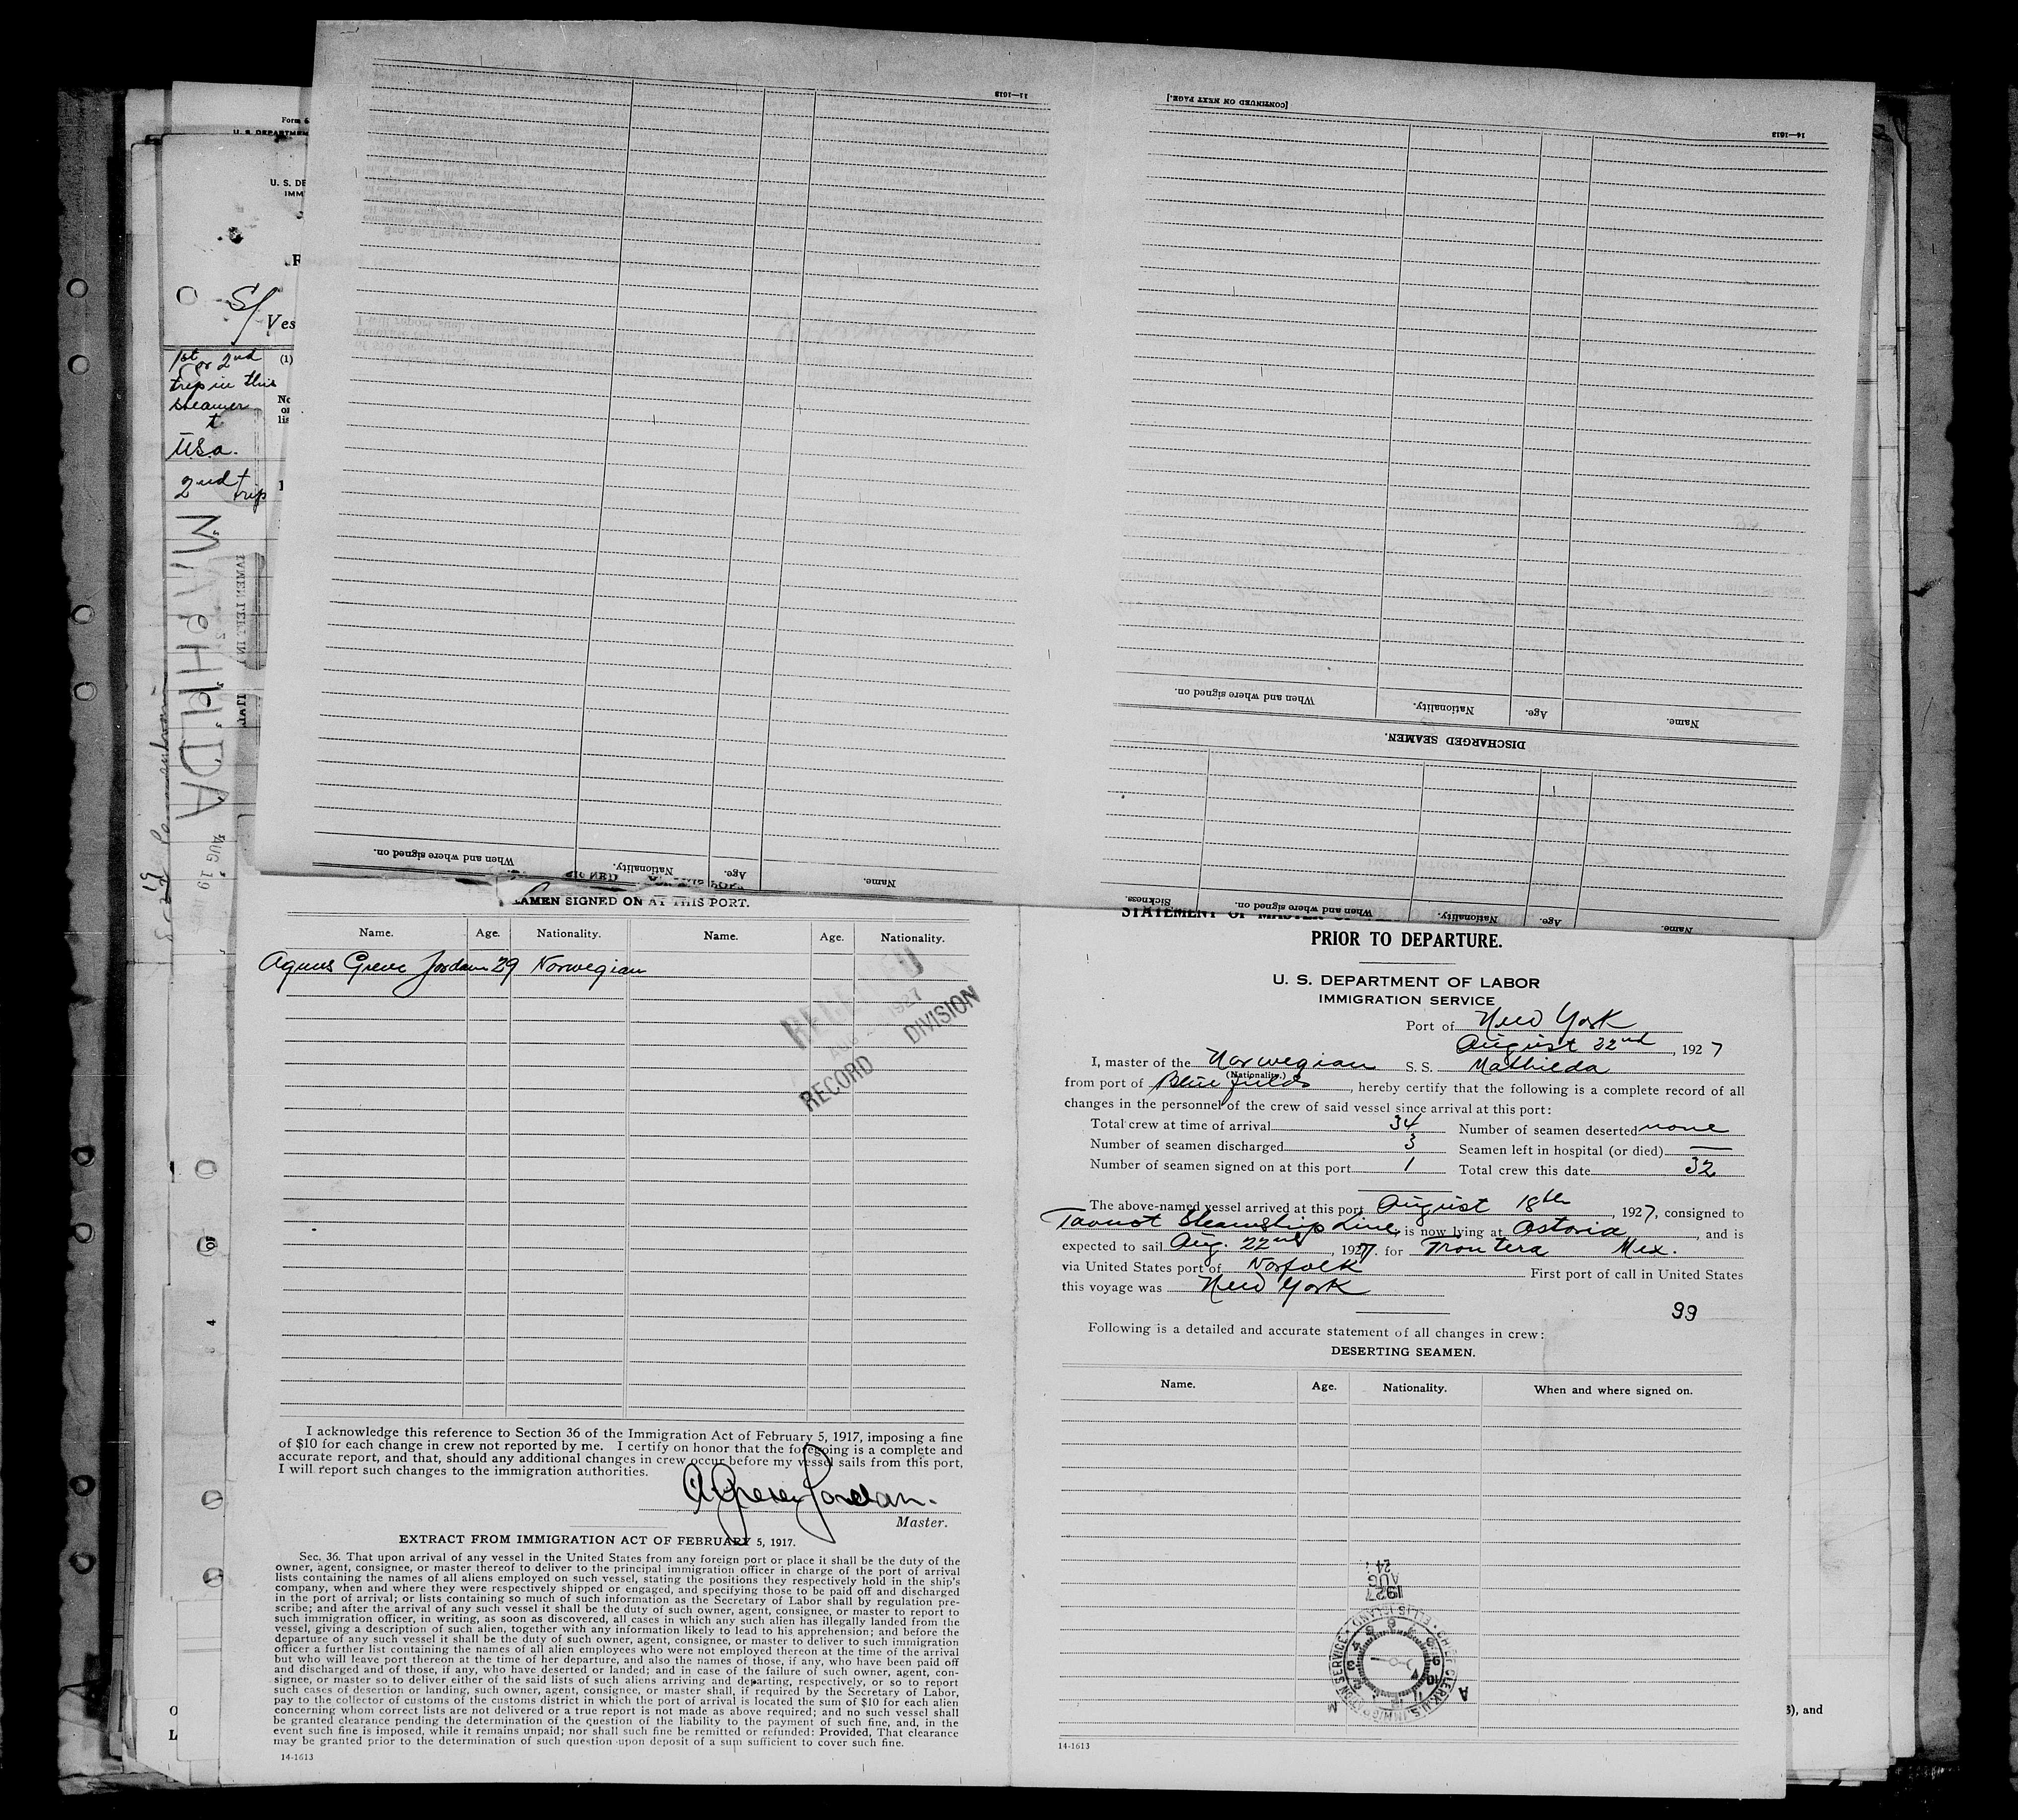 11—1613
[CONTINUED ON NEXT PAGE.]
14—1613
Name.
Age.
Nationality.
When and where signed on.
DISCHARGED SEAMEN.
Name.
Age.
Nationality.
When and where signed on.
Name.
Age.
Nationality.
When and where signed on.
Sickness.
Form
U. S. DEPARTMEN
U. S. DE
IMM
S/
Ves
1st or 2nd
trip in this
steamer
t
USA.
2nd trip
(1)
No
on
lis
AUG 19
SEAMEN SIGNED ON AT THIS PORT.
Name. Age. Nationality. Name. Age. Nationality.
Agnus Greve Jordan 29 Norwegian
1927
RECORD DIVISION
I acknowledge this reference to Section 36 of the Immigration Act of February 5, 1917, imposing a fine
of $10 for each change in crew not reported by me. I certify on honor that the foregoing is a complete and
accurate report, and that, should any additional changes in crew occur before my vessel sails from this port,
I will report such changes to the immigration authorities.
A Greve Jordan.
Master.
EXTRACT FROM IMMIGRATION ACT OF FEBRUARY 5, 1917.
Sec. 36. That upon arrival of any vessel in the United States from any foreign port or place it shall be the duty of the
owner, agent, consignee, or master thereof to deliver to the principal immigration officer in charge of the port of arrival
lists containing the names of all aliens employed on such vessel, stating the positions they respectively hold in the ship's
company, when and where they were respectively shipped or engaged, and specifying those to be paid off and discharged
in the port of arrival; or lists containing so much of such information as the Secretary of Labor shall by regulation pre-
scribe; and after the arrival of any such vessel it shall be the duty of such owner, agent, consignee, or master to report to
such immigration officer, in writing, as soon as discovered, all cases in which any such alien has illegally landed from the
vessel, giving a description of such alien, together with any information likely to lead to his apprehension; and before the
departure of any such vessel it shall be the duty of such owner, agent, consignee, or master to deliver to such immigration
officer a further list containing the names of all alien employees who were not employed thereon at the time of the arrival
but who will leave port thereon at the time of her departure, and also the names of those, if any, who have been paid off
and discharged and of those, if any, who have deserted or landed; and in case of the failure of such owner, agent, con-
signee, or master so to deliver either of the said lists of such aliens arriving and departing, respectively, or so to report
such cases of desertion or landing, such owner, agent, consignee, or master shall, if required by the Secretary of Labor,
pay to the collector of customs of the customs district in which the port of arrival is located the sum of $10 for each alien
concerning whom correct lists are not delivered or a true report is not made as above required; and no such vessel shall
be granted clearance pending the determination of the question of the liability to the payment of such fine, and, in the
event such fine is imposed, while it remains unpaid; nor shall such fine be remitted or refunded: Provided, That clearance
may be granted prior to the determination of such question upon deposit of a sum sufficient to cover such fine.
14-1613
STATEMENT OF MASTER
PRIOR TO DEPARTURE.
U. S. DEPARTMENT OF LABOR
IMMIGRATION SERVICE
Port of New York
August 22nd, 1927
I, master of the Norwegian S. S. Mathilda
(Nationality.)
from port of Bluefields, hereby certify that the following is a complete record of all
changes in the personnel of the crew of said vessel since arrival at this port:
Total crew at time of arrival 34 Number of seamen deserted none
Number of seamen discharged 3 Seamen left in hospital (or died) —
Number of seamen signed on at this port 1 Total crew this date 32
The above-named vessel arrived at this port August 18th, 1927, consigned to
Steamship Line, is now lying at Astoria, and is
expected to sail Aug. 22nd, 1927. for Frontera Mex.
via United States port of Norfolk First port of call in United States
this voyage was New York
99
Following is a detailed and accurate statement of all changes in crew:
DESERTING SEAMEN.
Name. Age. Nationality. When and where signed on.
1927
AUG
24
CHIEF CLERK U.S. IMMIGRATION SERVICE ELLIS ISLAND
14-1613
3), and